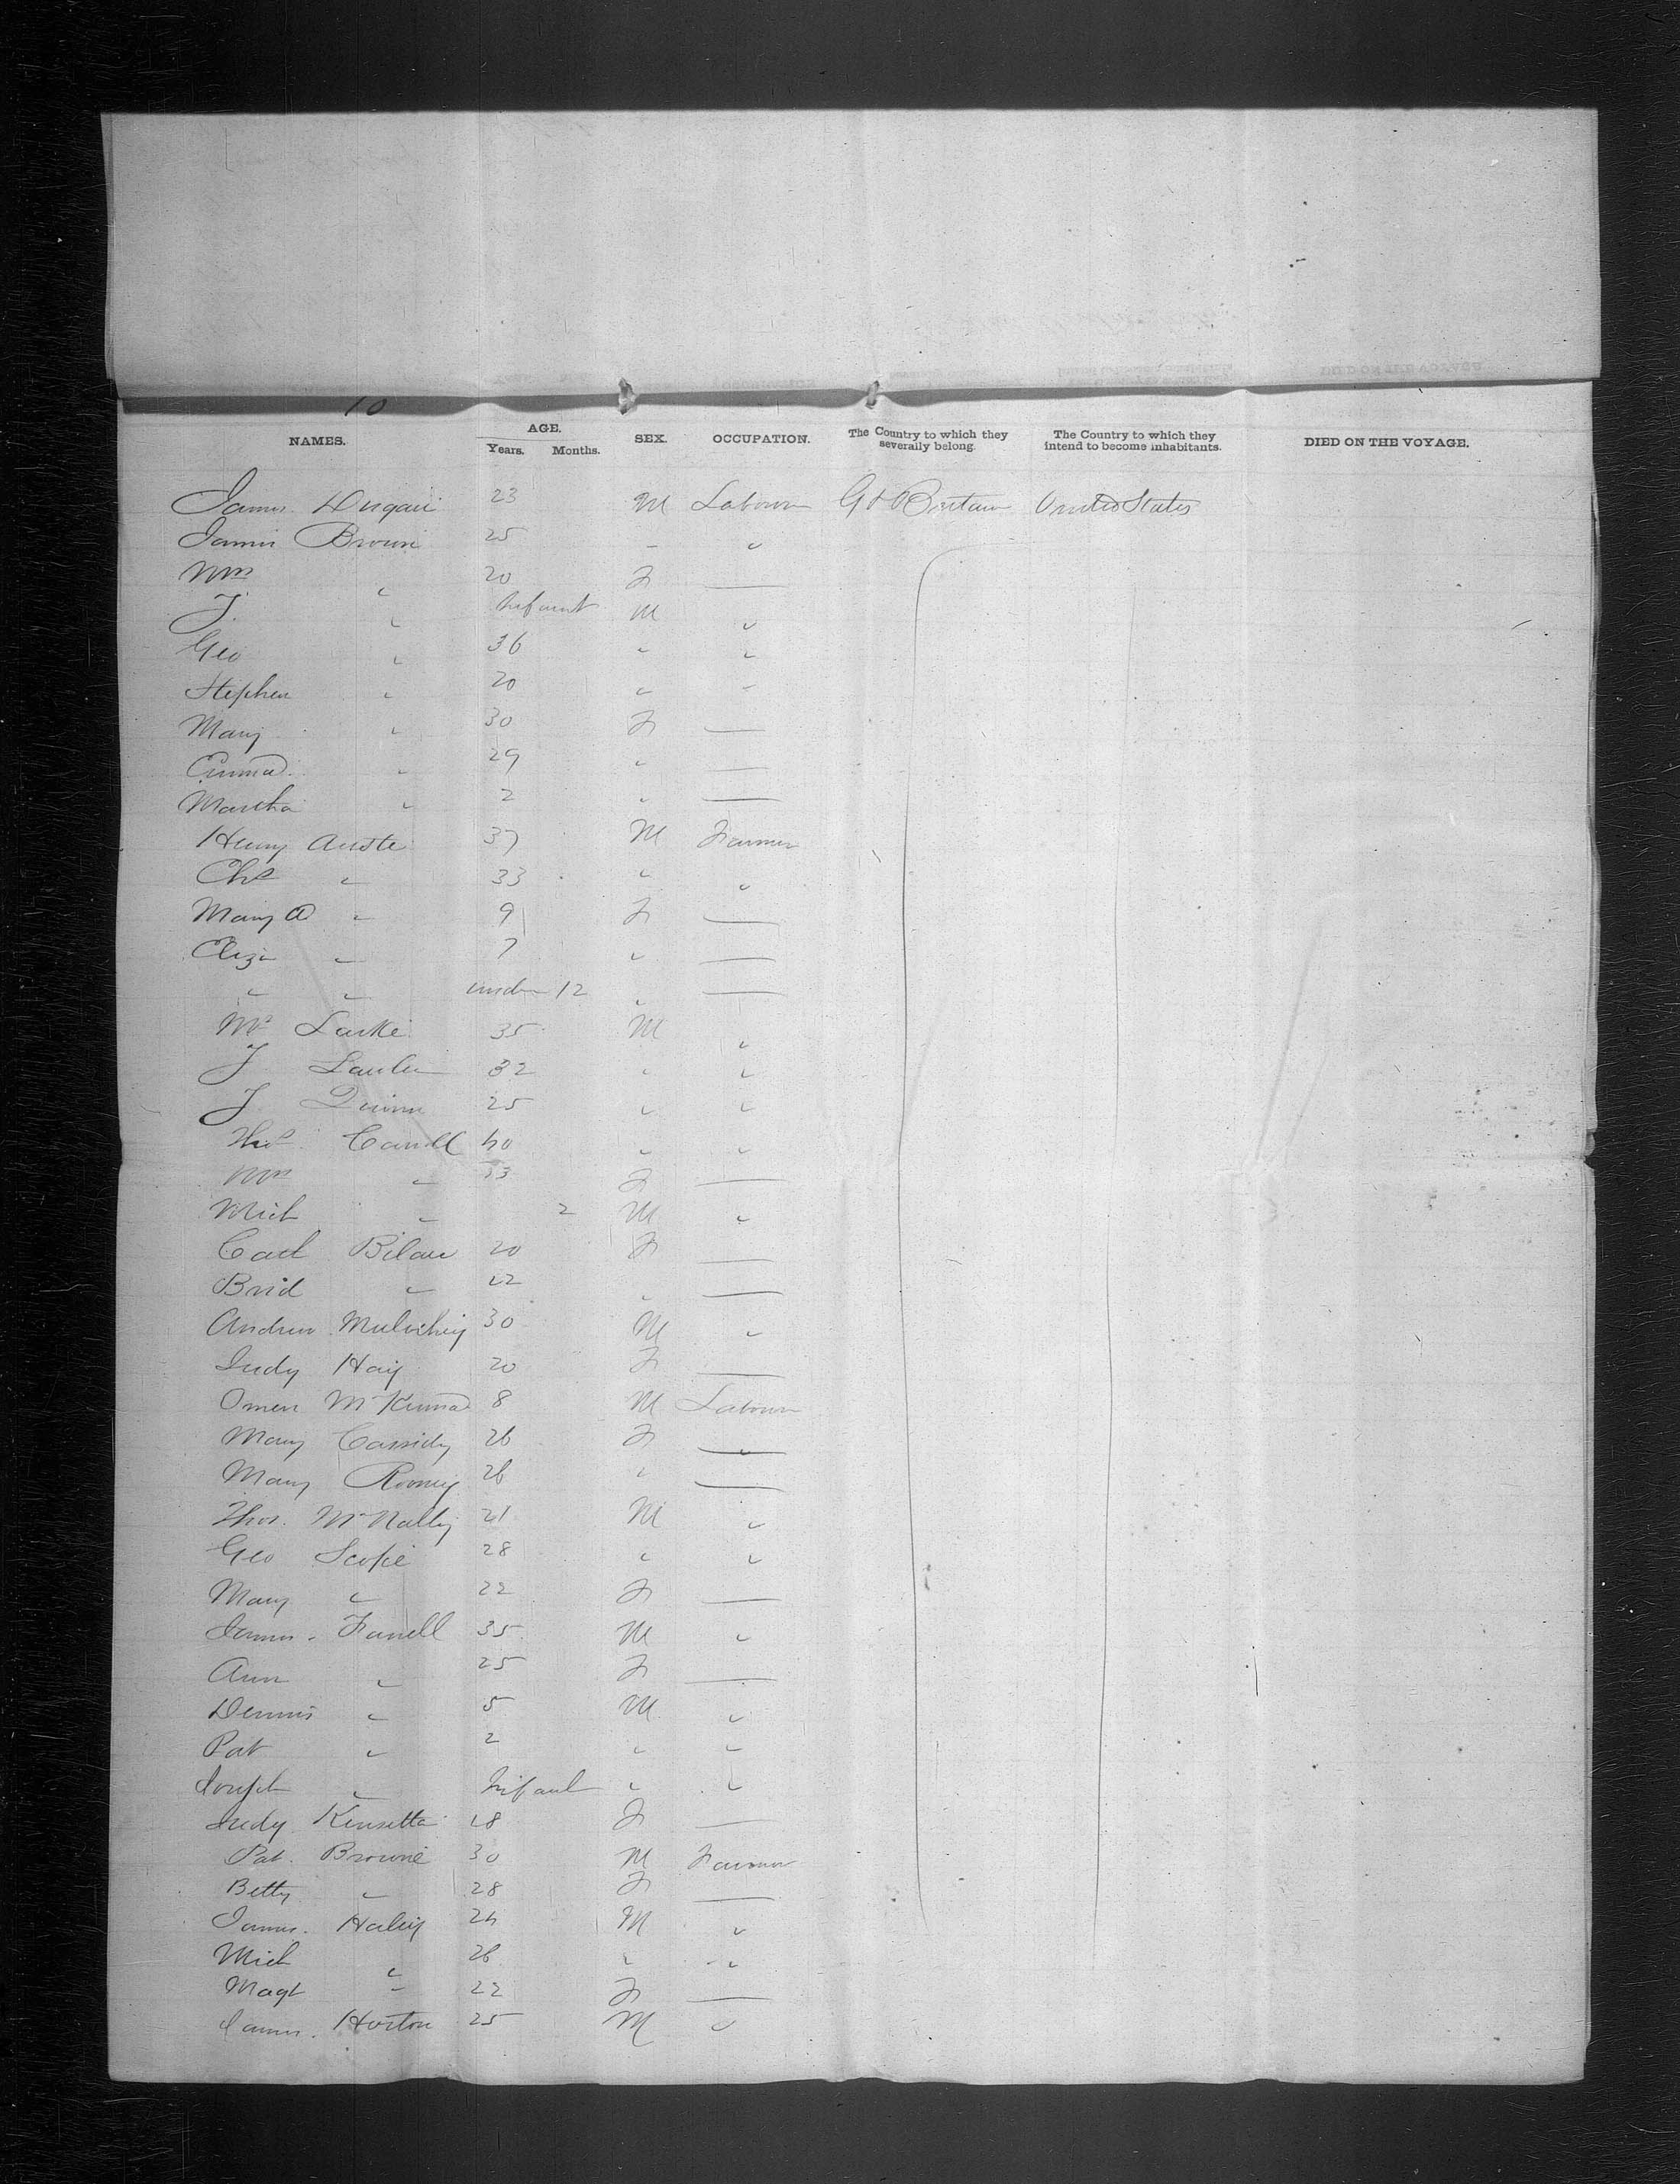 10
NAMES. AGE. Years. Months. SEX. OCCUPATION. The Country to which they severally belong. The Country to which they intend to become inhabitants. DIED ON THE VOYAGE.
James Dugan 23 M Labourer Gt Britain United States
James Brown 25 - "
Mrs " 20 F —
J. " Infant M "
Geo " 36 " "
Stephen " 20 " "
Mary " 30 F —
Emma " 29 " —
Martha " 2 " —
Henry 37 M Farmer
Chs " 33 " "
Mary A " 9 F —
Eliza " 7 " —
" " under 12 " —
35 M "
J 32 " "
J Quinn 25 " "
Thos Carroll 40 " "
Mrs " 33 F —
Mich " 2 M "
Cath 20 F —
Brid " 22 " —
Andrew Mulvihey 30 M "
Judy Hay 20 F —
Owen 8 M Labourer
Mary Cassidy 26 F —
Mary Rooney 26 " —
Thos. McNally 21 M "
Geo Scope 28 " "
Mary " 22 F —
James Farrell 35 M "
Ann " 25 F —
Dennis " 5 M "
Pat " 2 " "
Joseph " Infant " "
Judy Kinsella 18 F —
Pat. Browne 30 M Farmer
Betty " 28 F —
James. Haley 24 M "
Mich " 26 " "
Magt " 22 F —
James. Horton 25 M "